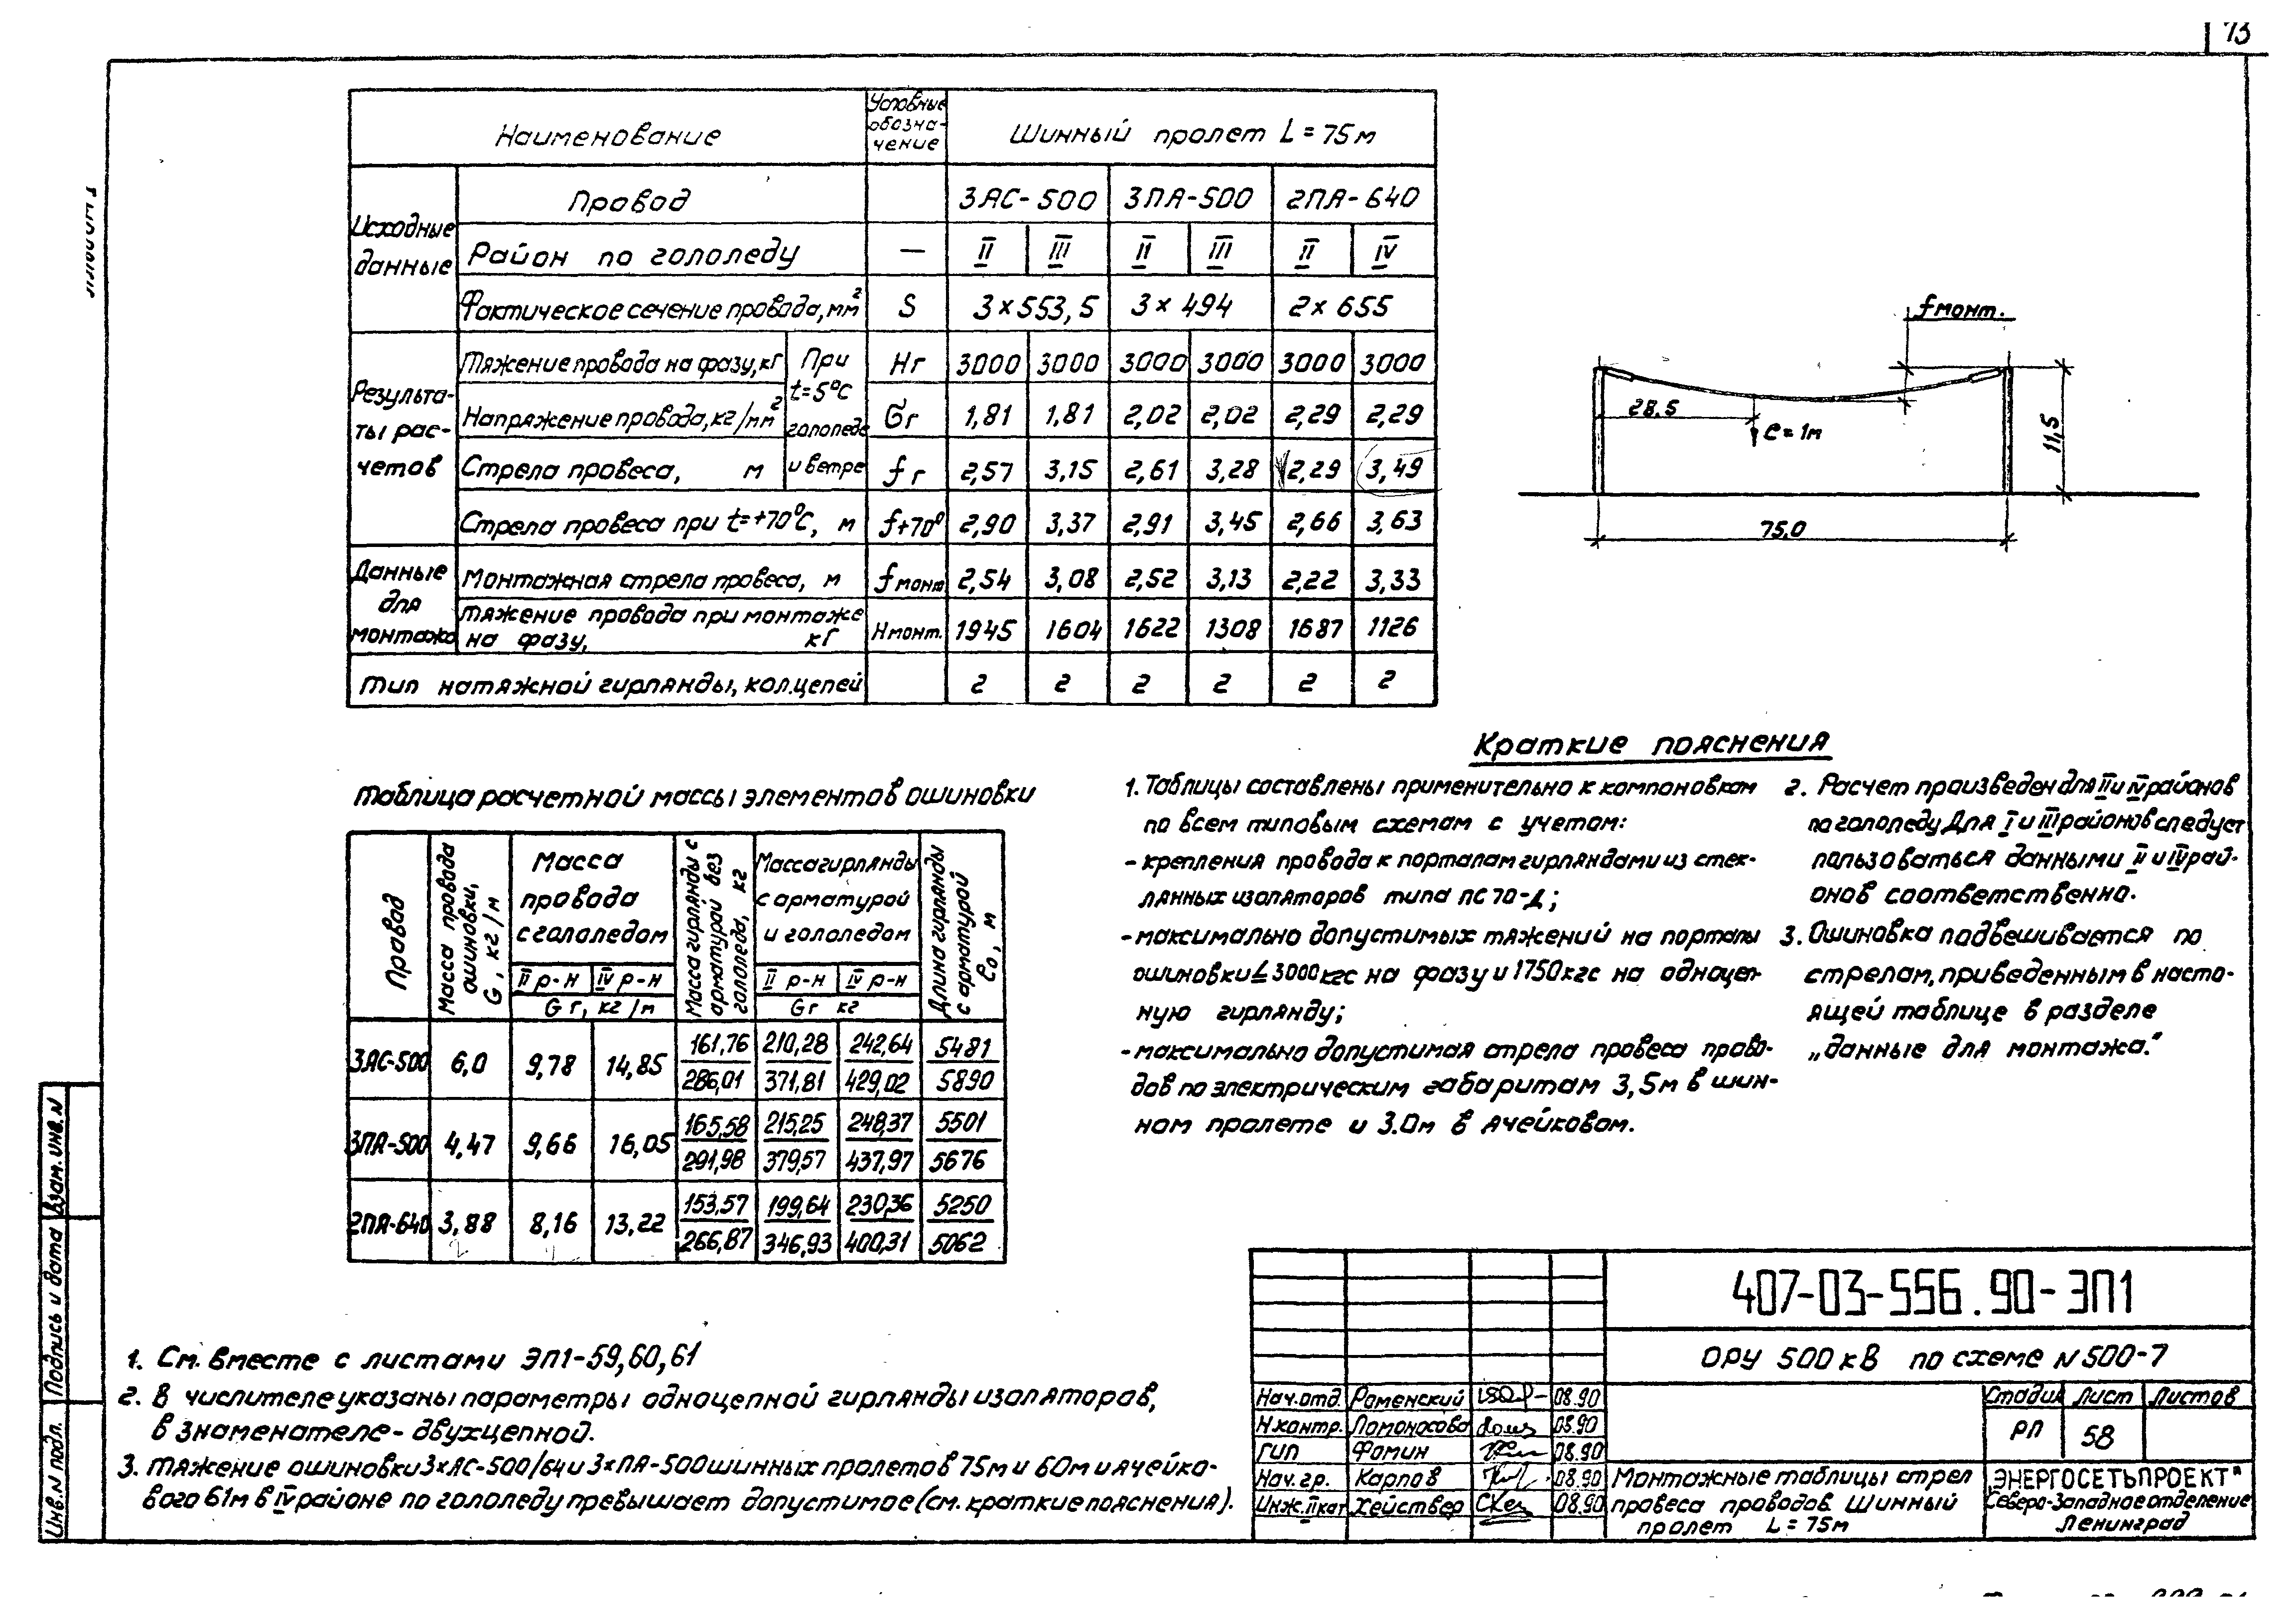 73
Наименование
Условные обозна-чение
Шинный пролет L = 75 м
Исходные данные
Провод
3АС-500
3ПА-500
2ПА-640
Район по гололеду
—
II
III
II
III
II
IV
Фактическое сечение провода, мм²
S
3×553,5
3×494
2×655
Результа-ты рас-четов
Тяжение провода на фазу, кг
При t=5°С гололеде и ветре
Hг
3000
3000
3000
3000
3000
3000
Напряжение провода, кг/мм²
σг
1,81
1,81
2,02
2,02
2,29
2,29
Стрела провеса, м
fг
2,57
3,15
2,61
3,28
2,29
3,49
Стрела провеса при t=+70°С, м
f+70°
2,90
3,37
2,91
3,45
2,66
3,63
Данные для монтажа
Монтажная стрела провеса, м
fмонт
2,54
3,08
2,52
3,13
2,22
3,33
Тяжение провода при монтаже на фазу, кГ
Hмонт.
1945
1604
1622
1308
1687
1126
Тип натяжной гирлянды, кол.цепей
2
2
2
2
2
2
fмонт.
28.5
ℓ=1м
11,5
75.0
Таблица расчетной массы элементов ошиновки
Провод
Масса провода ошиновки, G, кг/м
Масса провода с гололедом
II р-н
IV р-н
Gг, кг/м
Масса гирлянды с арматурой без гололеда, кг
Масса гирлянды с арматурой и гололедом
II р-н
IV р-н
Gг кг
Длина гирлянды с арматурой ℓо, м
3АС-500
6,0
9,78
14,85
161,76
286,01
210,28
371,81
242,64
429,02
5481
5890
3ПА-500
4,47
9,66
16,05
165,58
291,98
215,25
379,57
248,37
437,97
5501
5676
2ПА-640
3,88
8,16
13,22
153,57
266,87
199,64
346,93
230,36
400,31
5250
5062
Краткие пояснения
1. Таблицы составлены применительно к компоновкам
по всем типовым схемам с учетом:
- крепления провода к порталам гирляндами из стек-
лянных изоляторов типа ПС 70-Д;
- максимально допустимых тяжений на порталы
ошиновки ≤ 3000 кгс на фазу и 1750 кгс на одноцеп-
ную гирлянду;
- максимально допустимая стрела провеса прово-
дов по электрическим габаритам 3,5м в шин-
ном пролете и 3.0м в ячейковом.
2. Расчет произведен для II и IV районов
по гололеду Для I и III районов следует
пользоваться данными II и IV рай-
онов соответственно.
3. Ошиновка подвешивается по
стрелам, приведенным в насто-
ящей таблице в разделе
„данные для монтажа."
1. См. вместе с листами ЭП1-59,60,61
2. В числителе указаны параметры одноцепной гирлянды изоляторов,
в знаменателе - двухцепной.
3. Тяжение ошиновки 3×АС-500/64 и 3×ПА-500 шинных пролетов 75м и 60м и ячейко-
вого 61м в IV районе по гололеду превышает допустимое (см. краткие пояснения).
407-03-556.90-ЭП1
ОРУ 500 кВ по схеме N 500-7
Нач.отд. Роменский 08.90
Н.контр. Ломоносова 08.90
ГИП Фомин 08.90
Нач.гр. Карпов 08.90
Инж.II кат Хействер 08.90
Стадия Лист Листов
РП 58
Монтажные таблицы стрел
провеса проводов. Шинный
пролет L = 75м
ЭНЕРГОСЕТЬПРОЕКТ"
Северо-Западное отделение
Ленинград
Инв.N подл. Подпись и дата Взам.инв.N